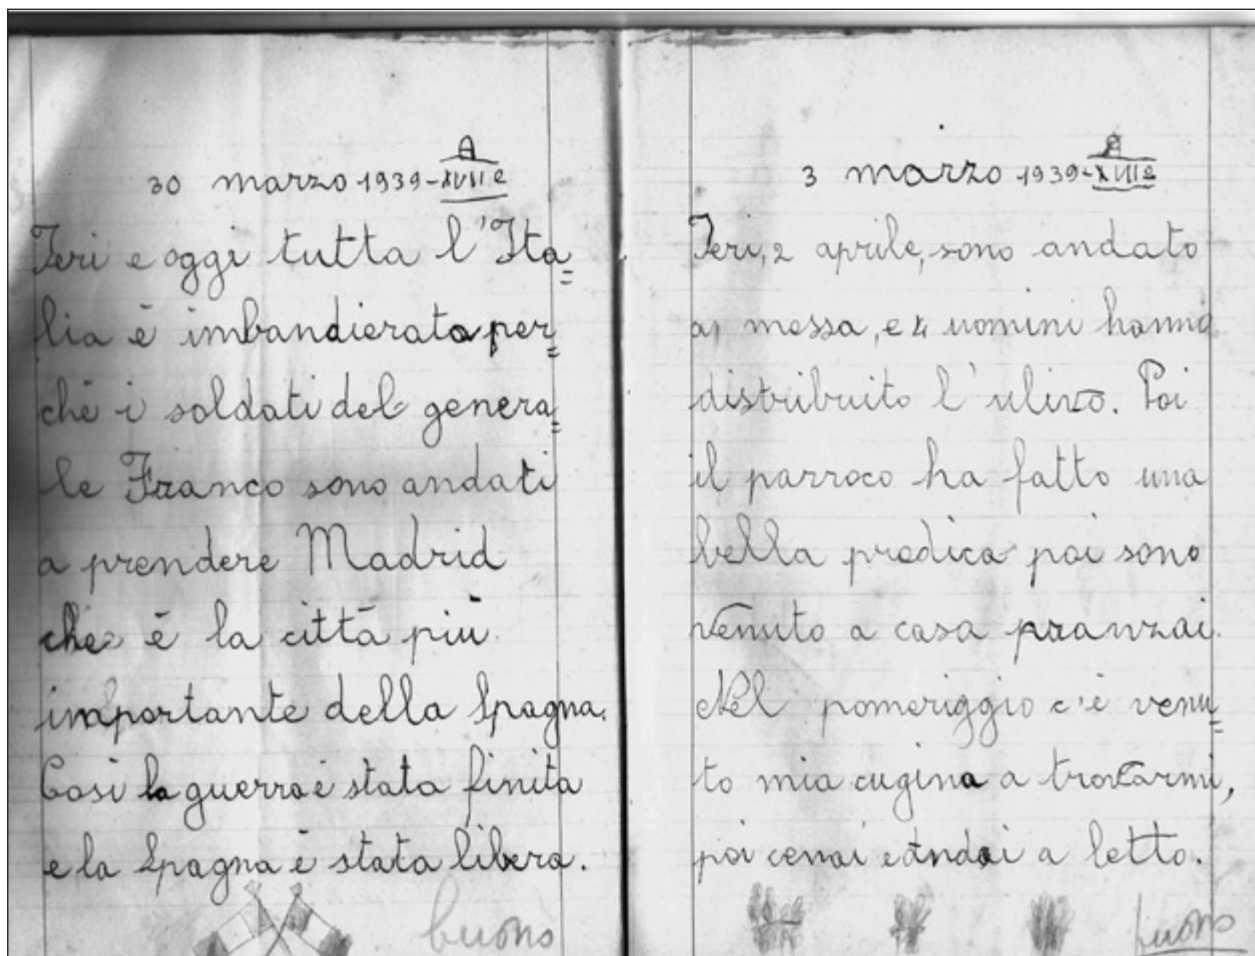 30 marzo 1939-XVIIe
A
Ieri e oggi tutta l'Ita=
lia è imbandierata per=
chè i soldati del genera=
le Franco sono andati
a prendere Madrid
che è la città più
importante della Spagna.
Così la guerra è stata finita
e la Spagna è stata libera.
buono
3 marzo 1939-XVIIe
A
Ieri, 2 aprile, sono andato
a messa, e 4 uomini hanno
distribuito l'ulivo. Poi
il parroco ha fatto una
bella predica poi sono
venuto a casa pranzai.
Nel pomeriggio c'è venu=
to mia cugina a trovarmi,
poi cenai e andai a letto.
buono